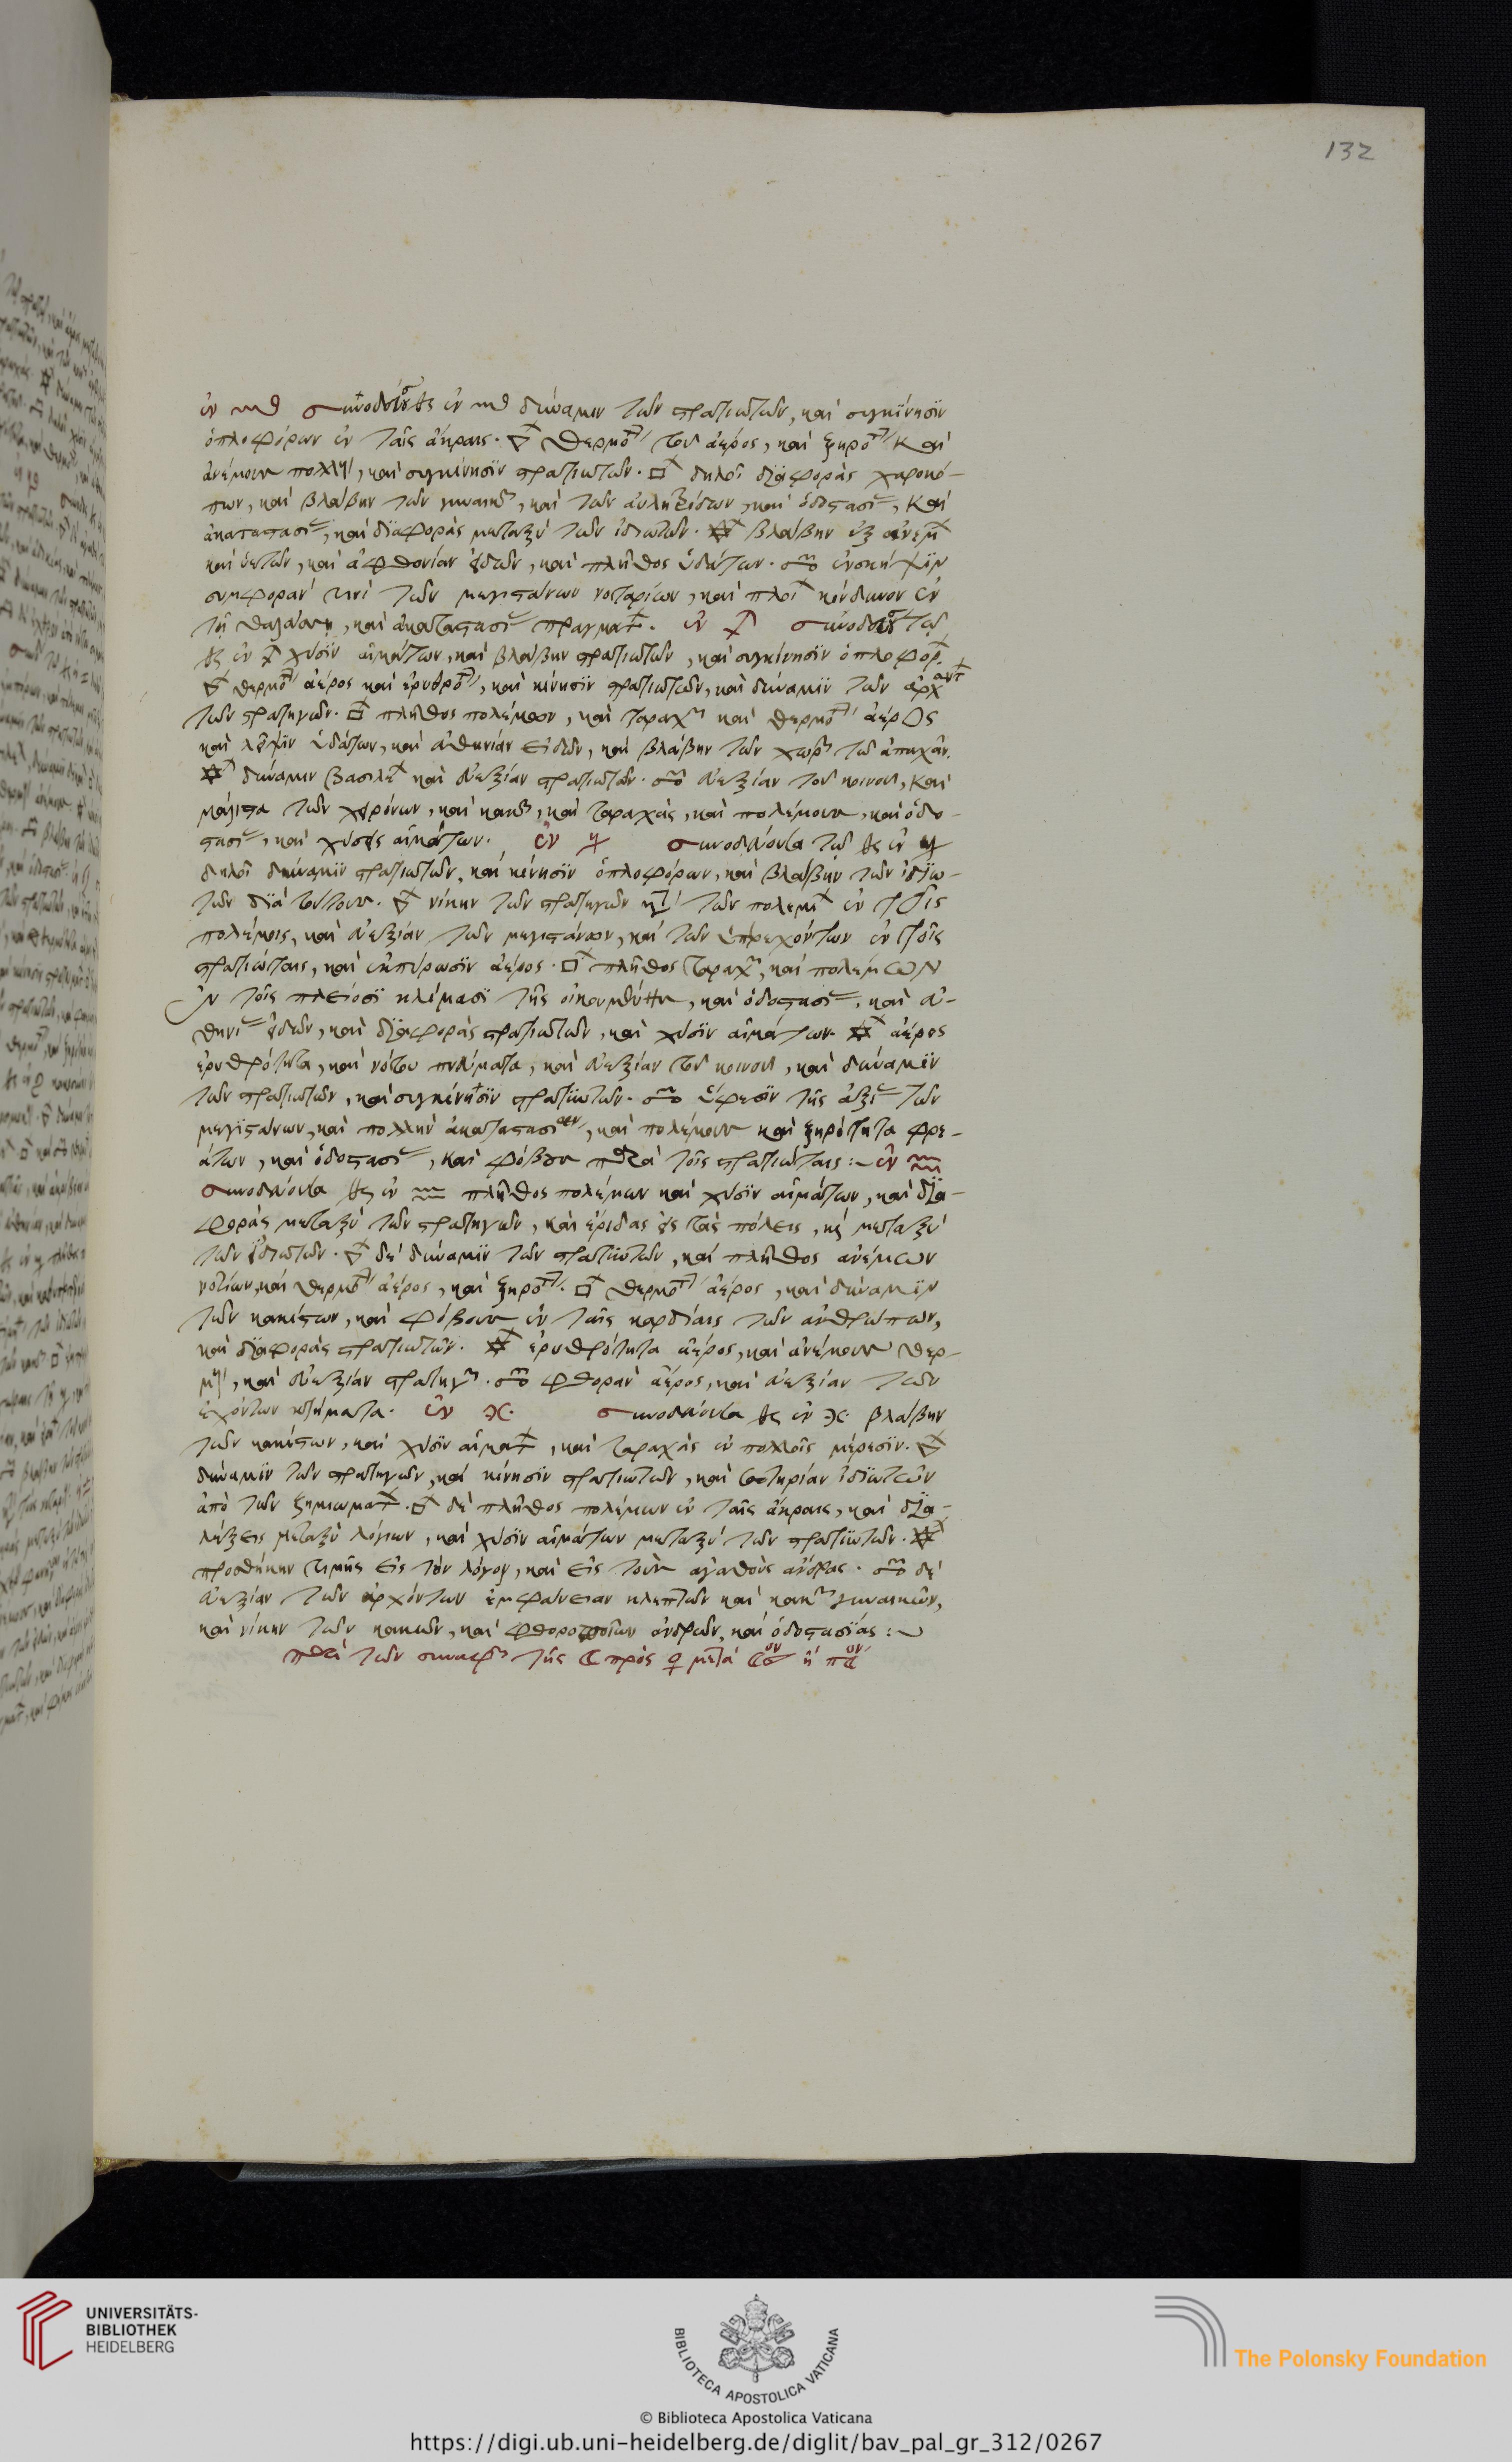 132
ἐν ♏ συνοδεύουσα ἐν ♏ δύναμιν τῶν στρατιωτῶν, καὶ συγκίνησϊν
ὁπλοφόρων ἐν ταῖς ἄκραις. θερμό τοῦ ἀέρος, καὶ ξηρό καὶ
ἀνέμους πολλ, καὶ συγκίνησϊν στρατιωτῶν. □ δηλοῖ διαφορὰς χαροκό-
πων, καὶ βλάβην τῶν γυναικ, καὶ τῶν αὐλητρίδων, καὶ ὁδοστασί, καὶ
ἀκαταστασί, καὶ διαφορὰς μεταξὺ τῶν ἰδιωτῶν. βλάβην ἐξ ἀνέμ
καὶ ὑετῶν, καὶ ἀφθονίαν εἰδῶν, καὶ πλῆθος ὑδάτων. ☍ ἐνσκήψϊν
συμφορὰν τινὶ τῶν μεγιστάνων νοταρίων, καὶ πλοί κίνδυνον ἐν
τῇ θαλάσσῃ, καὶ ἀκαταστασί πραγματ. ἐν ♐ σύνοδος τῶν
ἐν ♐ χύσϊν αἱμάτων, καὶ βλάβην στρατιωτῶν, καὶ συγκίνησϊν ὁπλοφόρ.
θερμό ἀέρος καὶ ἐρυθρό, καὶ κίνησϊν στρατιωτῶν, καὶ δύναμϊν τῶν ἀρχ
τῶν στρατηγῶν. □ πλῆθος πολέμων, καὶ ταραχ καὶ θερμό ἀέρος
καὶ λεῖψϊν ὑδάτων, καὶ εὐθηνίαν εἰδῶν, καὶ βλάβην τῶν χωρ
δύναμιν βασιλέ καὶ εὐεξίαν στρατιωτῶν. ☍ εὐεξίαν τοῦ κοινοῦ, καὶ
μάλιστα τῶν γερόντων, καὶ κακ, καὶ ταραχὰς, καὶ πολέμους, καὶ ὁδο-
στασί, καὶ χύσεις αἱμάτων. ἐν ♑ συνοδεύοντα ἐν ♑
δηλοῖ δύναμϊν στρατιωτῶν, καὶ κίνησϊν ὁπλοφόρων, καὶ βλάβην τῶν ἰδϊω-
τῶν δϊὰ τούτους. νίκην τῶν στρατηγῶν κατὰ τῶν πολεμί ἐν τοῖς
πολέμοις, καὶ εὐεξίαν τῶν μεγιστάνων, καὶ τῶν ὑπερεχόντων ἐν τοῖς
στρατιώταις, καὶ ἐκπύρωσϊν ἀέρος. □ πλῆθος ταραχ, καὶ πολέμων
ἐν τοῖς πλείοσϊ κλίμασϊ τῆς οἰκουμένης, καὶ ὁδοστασί, καὶ εὐ-
θηνί εἰδῶν, καὶ διαφορὰς στρατιωτῶν, καὶ χύσϊν αἱμάτων. ἀέρος
ἐρυθρότητα, καὶ νότου πνεύματα, καὶ εὐεξίαν τοῦ κοινοῦ, καὶ δύναμϊν
τῶν στρατιωτῶν, καὶ συγκίνησϊν στρατϊωτῶν. ☍ ὕφεσϊν τῆς ἀξί τῶν
μεγϊστάνων, καὶ πολλὴν ἀκαταστασίαν, καὶ πολέμους καὶ ξηρότητα φρε-
άτων, καὶ ὁδοστασί, καὶ φόβον μετὰ τοῖς στρατιώταις :~ ἐν ♒
συνοδεύοντα ἐν ♒ πλῆθος πολέμων καὶ χύσϊν αἱμάτων, καὶ δϊα-
φορὰς μεταξὺ τῶν στρατηγῶν, καὶ ἔριδας εἰς τὰς πόλεις, κὶ μεταξὺ
τῶν ἰδιωτῶν. δὲ δύναμϊν τῶν στρατϊωτῶν, καὶ πλῆθος ἀνέμων
νοτίων, καὶ θερμό ἀέρος, καὶ ξηρό. □ θερμό ἀέρος, καὶ δύναμϊν
τῶν κακίστων, καὶ φόβους ἐν ταῖς καρδίαις τῶν ἀνθρώπων,
καὶ δϊαφορὰς στρατιωτῶν. ἐρυθρότητα ἀέρος, καὶ ἀνέμους θερ-
μ, καὶ εὐεξίαν στρατηγ. ☍ φθορὰν ἀέρος, καὶ εὐεξίαν τῶν
ἐχόντων κτήματα. ἐν ♓. συνοδεύοντα ἐν ♓. βλάβην
τῶν κακίστων, καὶ χύσϊν αἱματ, καὶ ταραχὰς ἐν πολλοῖς μέρεσϊν.
δύναμϊν τῶν στρατηγῶν, καὶ κίνησϊν στρατιωτῶν, καὶ σωτηρίαν ἰδϊωτῶν
ἀπὸ τῶν ζημιωματ. □ δὲ πλῆθος πολέμων ἐν ταῖς ἄκραις, καὶ δϊα-
λέξεις μεταξὺ λόγων, καὶ χύσϊν αἱμάτων μεταξὺ τῶν στρατϊωτῶν.
προσθήκην τιμῆς εἰς τὸν λόγον, καὶ εἰς τοὺς ἀγαθοὺς ἄνδρας. ☍ δὲ
εὐεξίαν τῶν ἀρχόντων ἐμφάνειαν κλεπτῶν καὶ κακ γυναικῶν,
καὶ νίκην τῶν κακῶν, καὶ φθοροποιῶν ἀνδρῶν, καὶ ὁδοστασϊας :~
περὶ τῶν συναφ τῆς ☾ πρὸς ♀ μετὰ
UNIVERSITÄTS-
BIBLIOTHEK
HEIDELBERG
BIBLIOTECA APOSTOLICA VATICANA
The Polonsky Foundation
© Biblioteca Apostolica Vaticana
https://digi.ub.uni-heidelberg.de/diglit/bav_pal_gr_312/0267